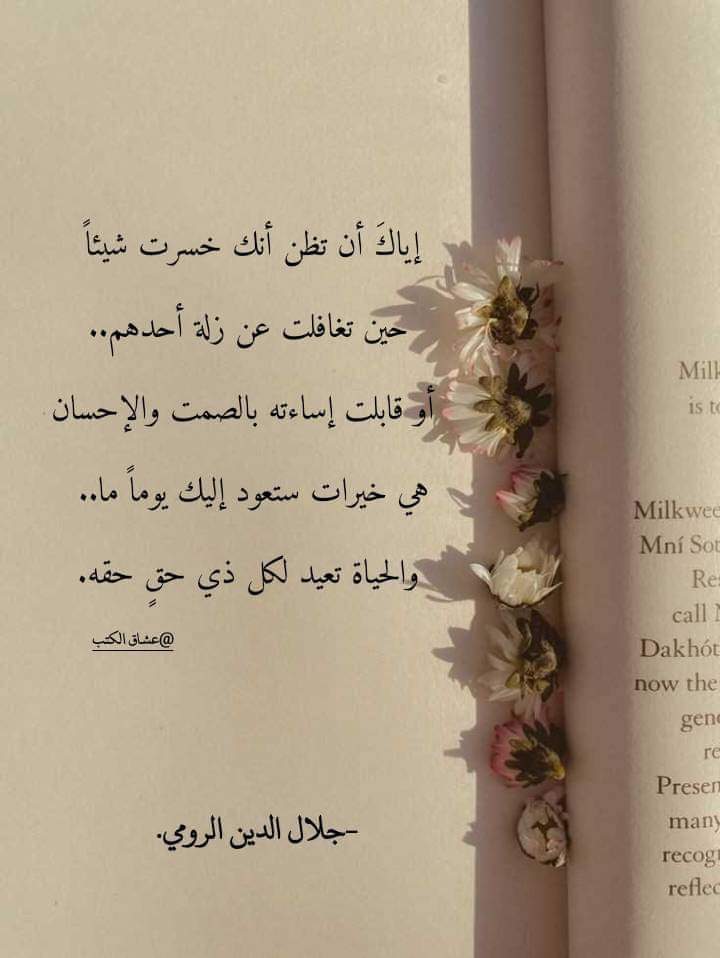 إياكَ أن تظن أنك خسرت شيئاً
حين تغافلت عن زلة أحدهم..
أو قابلت إساءته بالصمت والإحسان
هي خيرات ستعود إليك يوماً ما..
والحياة تعيد لكل ذي حقٍ حقه.
@عشاق الكتب
-جلال الدين الرومي.
is
Mní
call
Dakhót
now the
many